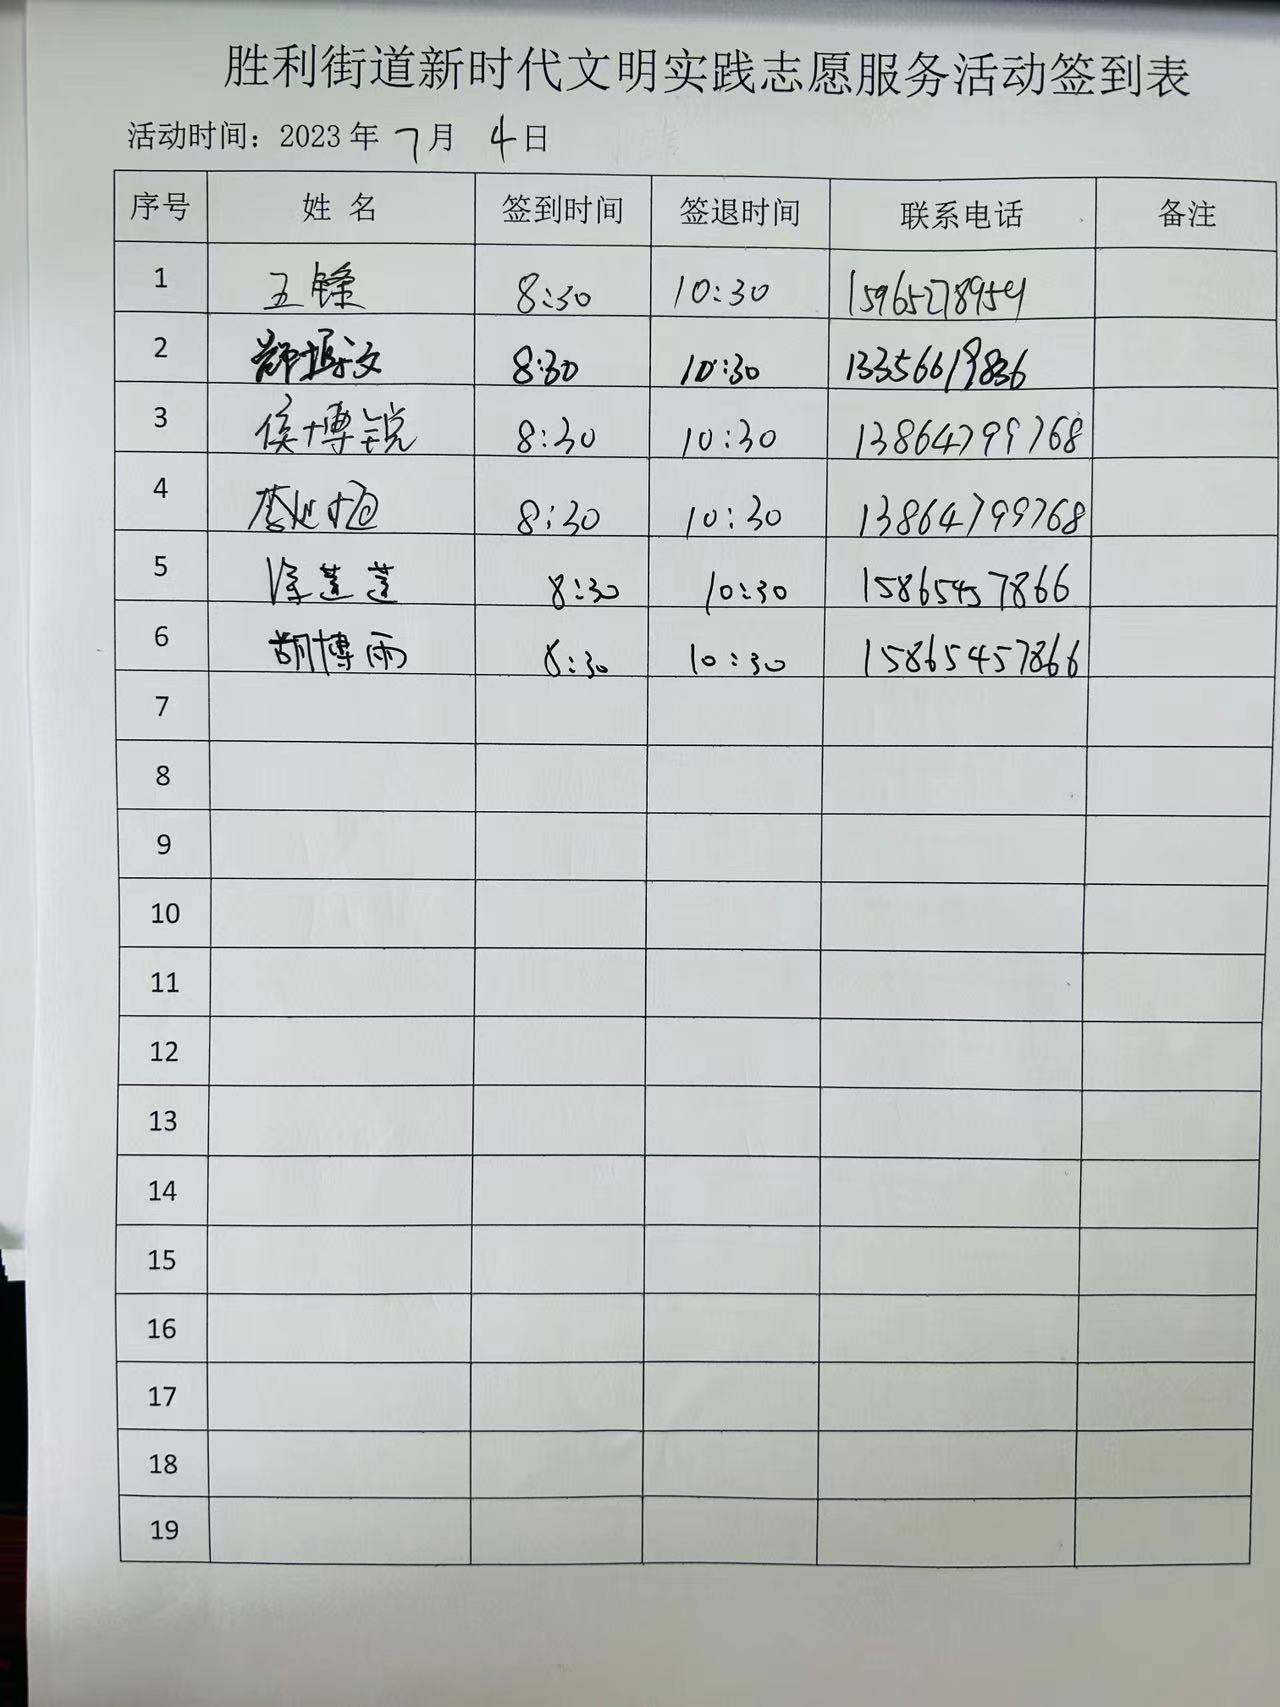 胜利街道新时代文明实践志愿服务活动签到表
活动时间：2023年 7月 4日
序号 姓 名 签到时间 签退时间 联系电话 备注
1 王锋 8:30 10:30 15965278954
2 8:30 10:30 13356619836
3 侯博锐 8:30 10:30 13864799768
4 8:30 10:30 13864799768
5 徐莲莲 8:30 10:30 15865457866
6 胡博雨 8:30 10:30 15865457866
7
8
9
10
11
12
13
14
15
16
17
18
19